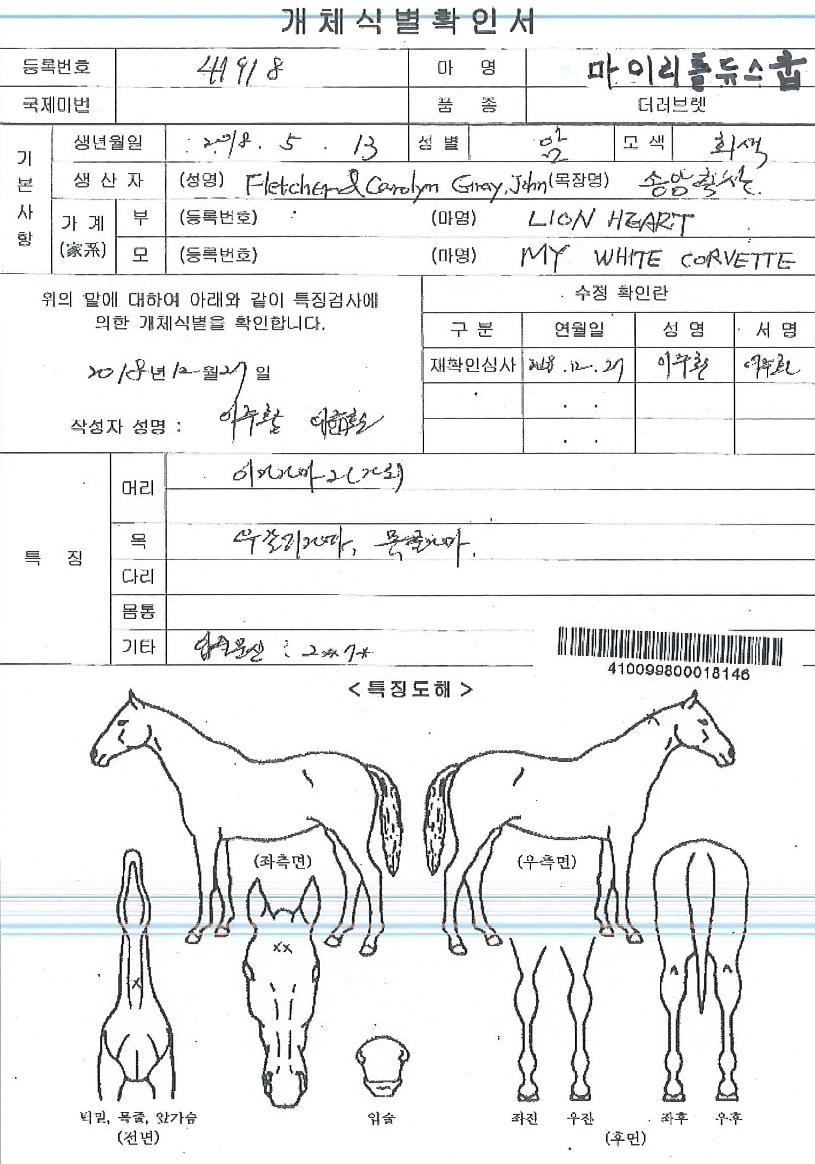 개체식별확인서
등록번호 41918 마 명
국제마번 품 종 더러브렛
기본사항
생년월일 2018. 5 . 13 성 별 암 모 색 회색
생 산 자 (성명) Fletcher & Carolyn Gray, John (목장명)
가 계 (家系) 부 (등록번호) (마명) LION HEART
모 (등록번호) (마명) MY WHITE CORVETTE
위의 말에 대하여 아래와 같이 특징검사에
의한 개체식별을 확인합니다.
2018년 12월 27일
작성자 성명 :
수정 확인란
구 분 연월일 성 명 서 명
재확인심사 2018.12.27
. .
. .
특 징
머리
목
다리
몸통
기타
410099800018146
<특징도해>
(좌측면) (우측면)
xx
x
턱밑, 목줄, 앞가슴 입술 좌전 우전 좌후 우후
(전면) (후면)